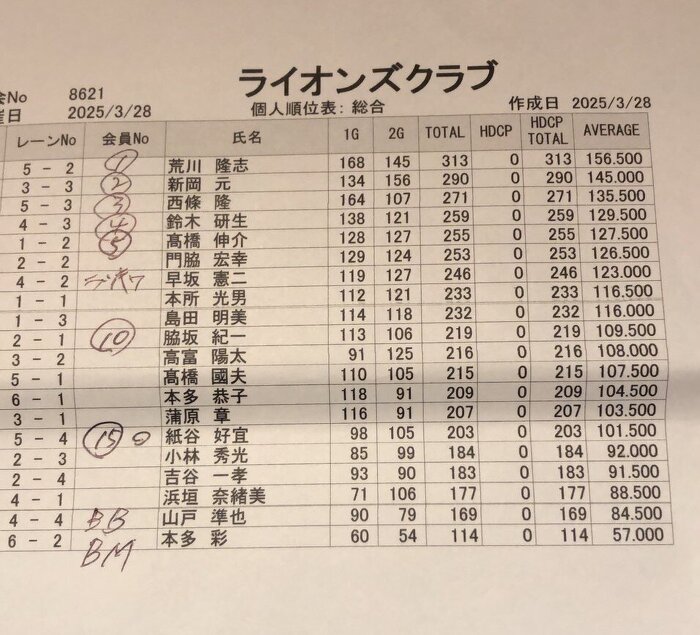 ライオンズクラブ
会No 8621
催日 2025/3/28 個人順位表：総合 作成日 2025/3/28
レーンNo 会員No 氏名 1G 2G TOTAL HDCP HDCP TOTAL AVERAGE
5 - 2 ① 荒川 隆志 168 145 313 0 313 156.500
3 - 3 ② 新岡 元 134 156 290 0 290 145.000
5 - 3 ③ 西條 隆 164 107 271 0 271 135.500
4 - 3 ④ 鈴木 研生 138 121 259 0 259 129.500
1 - 2 ⑤ 髙橋 伸介 128 127 255 0 255 127.500
2 - 2 門脇 宏幸 129 124 253 0 253 126.500
4 - 2 早坂 憲二 119 127 246 0 246 123.000
1 - 1 本所 光男 112 121 233 0 233 116.500
1 - 3 島田 明美 114 118 232 0 232 116.000
2 - 1 ⑩ 脇坂 紀一 113 106 219 0 219 109.500
3 - 2 高富 陽太 91 125 216 0 216 108.000
5 - 1 髙橋 國夫 110 105 215 0 215 107.500
6 - 1 本多 恭子 118 91 209 0 209 104.500
3 - 1 蒲原 章 116 91 207 0 207 103.500
5 - 4 ⑮ 紙谷 好宜 98 105 203 0 203 101.500
2 - 3 小林 秀光 85 99 184 0 184 92.000
2 - 4 吉谷 一孝 93 90 183 0 183 91.500
4 - 1 浜垣 奈緒美 71 106 177 0 177 88.500
4 - 4 BB 山戸 準也 90 79 169 0 169 84.500
6 - 2 BM 本多 彩 60 54 114 0 114 57.000